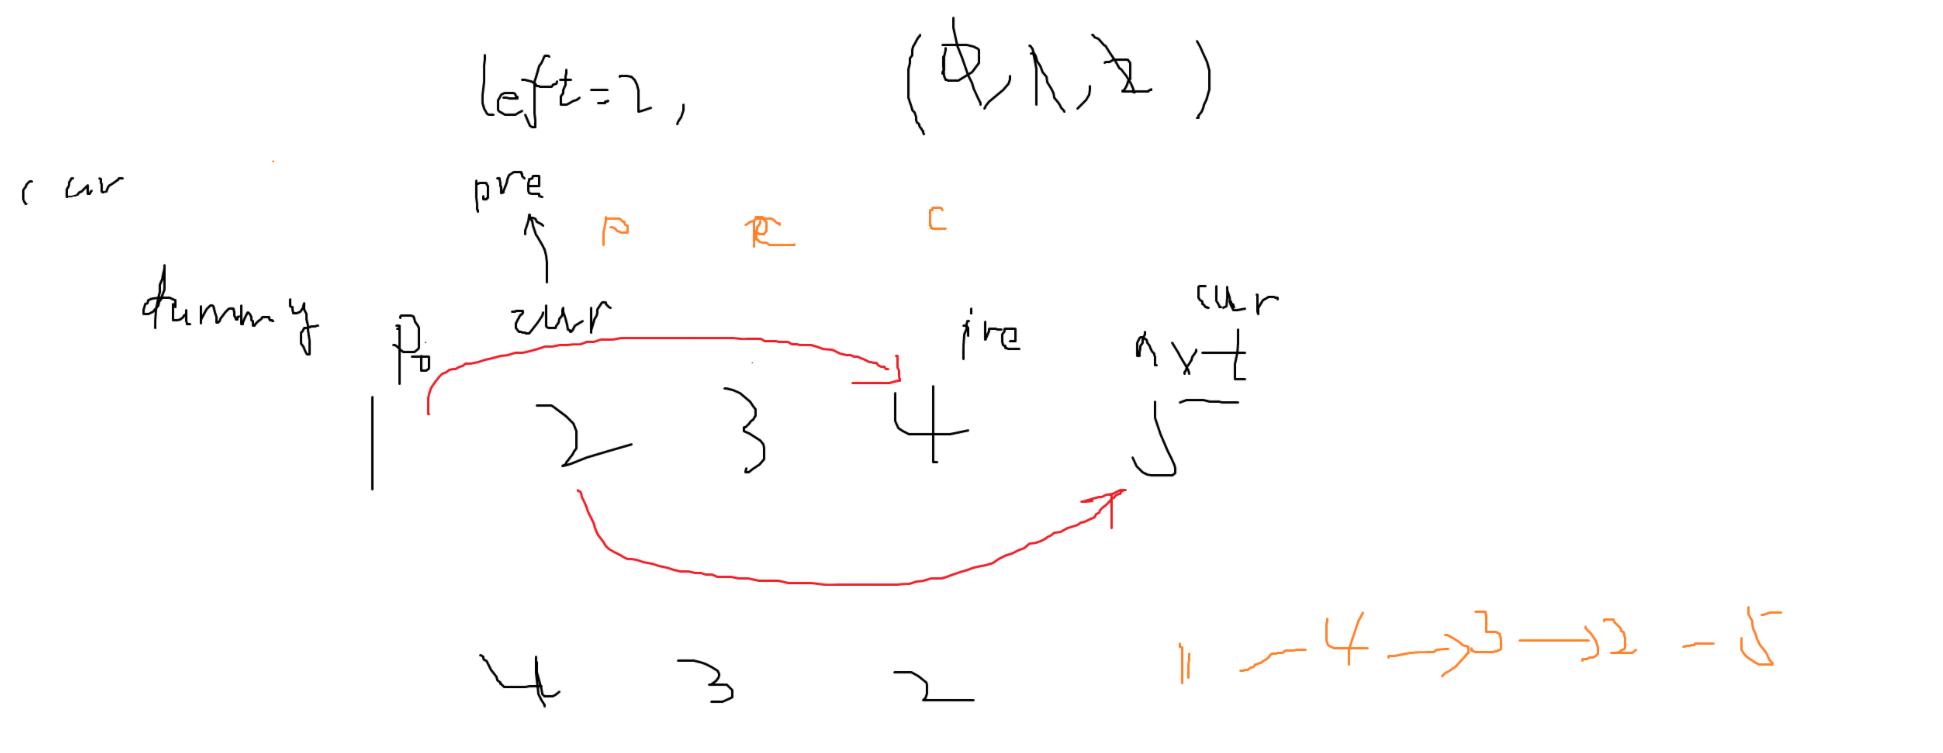 left=2, (0,1,2)
cur
pre
P R C
dummy P0 cur pre cur
nxt
1 2 3 4 5
4 3 2
1 - 4 → 3 → 2 - 5